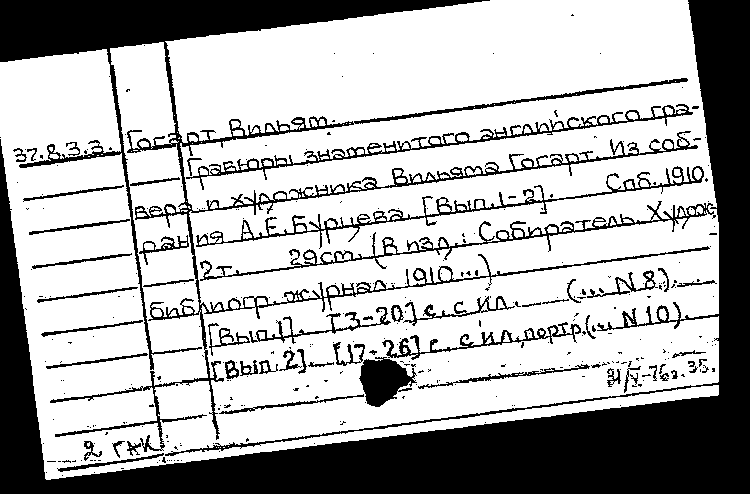 37.8.3.3. Гогарт, Вильям.
Гравюры знаменитого английского гра-
вера и художника Вильяма Гогарт. Из соб-
рания А.Е. Бурцева. [Вып. 1-2]. Спб., 1910.
2т. 29см. (В изд.: Собиратель. Худож.
библиогр. журнал. 1910...).
[Вып. 1]. [3-20] с. с ил. (... N 8).
[Вып. 2]. [17-26] с. с ил., портр. (... N 10).
2 ГАК